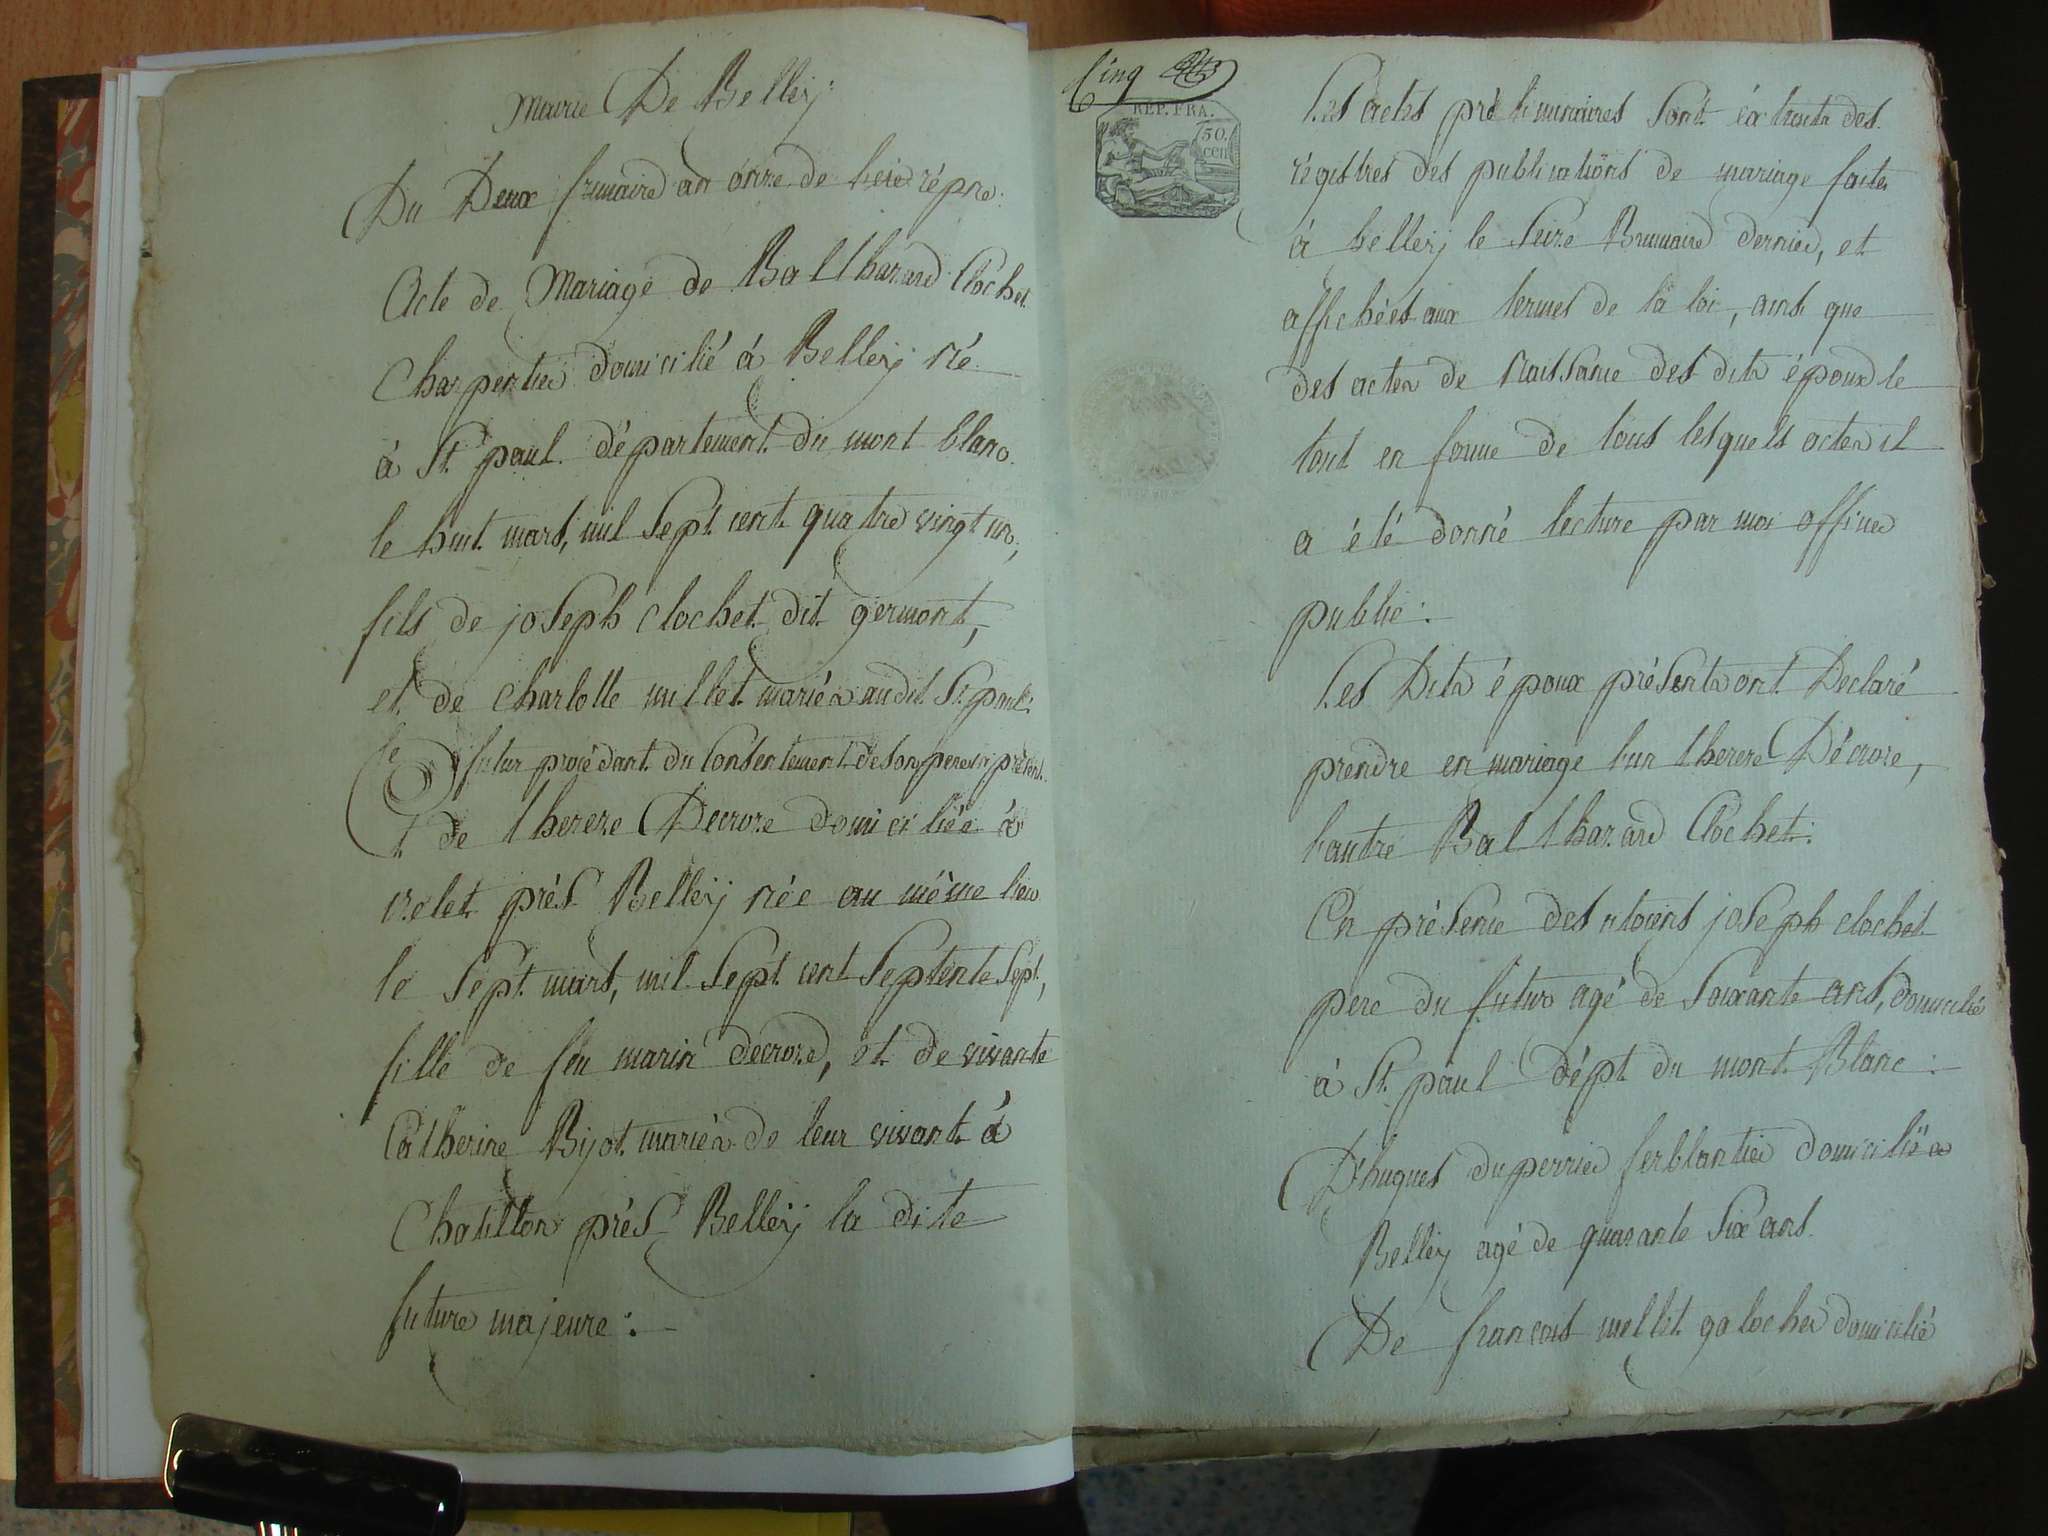 Mairie De Belleÿ:
Du Deux frimaire an onze de l'ere répne:
Acte de Mariage de Balthazard Clochet
Charpentier domicilié à Belleÿ né
à St. paul département du mont blanc
le huit mars, mil sept cent quatre vingt un,
fils de joseph clochet dit germont,
et de charlotte millet mariés audit St. paul:
le futur procédant du consentement de son pere ici présent
Et de therese Decroze domiciliée à
près Belleÿ née au même lieu
le sept mars, mil sept cent septente sept,
fille de feu marin decroze, et de vivante
Catherine Bijot mariés de leur vivant à
Chatillon près Belleÿ la dite
future majeure:
Cinq
REP. FRA.
50.
cen
Les actes préliminaires sont extraits des
régistres des publications de mariage faites
à belleÿ le seize Brumaire dernier, et
affichées aux termes de la loi, ainsi que
des actes de naissance des dits époux le
tout en forme de tous lesquels actes il
a été donné lecture par moi officier
public:
Les Dits époux présents ont Déclaré
prendre en mariage l'un therese Décroze,
l'autre Balthazard Clochet:
En présence des citoyens joseph clochet
pere du futur agé de soixante ans, domicilié
à St. paul dépt. du mont Blanc:
D'hugues duperrier ferblantier domicilié à
Belleÿ agé de quarante six ans.
De françois millet galocher domicilié